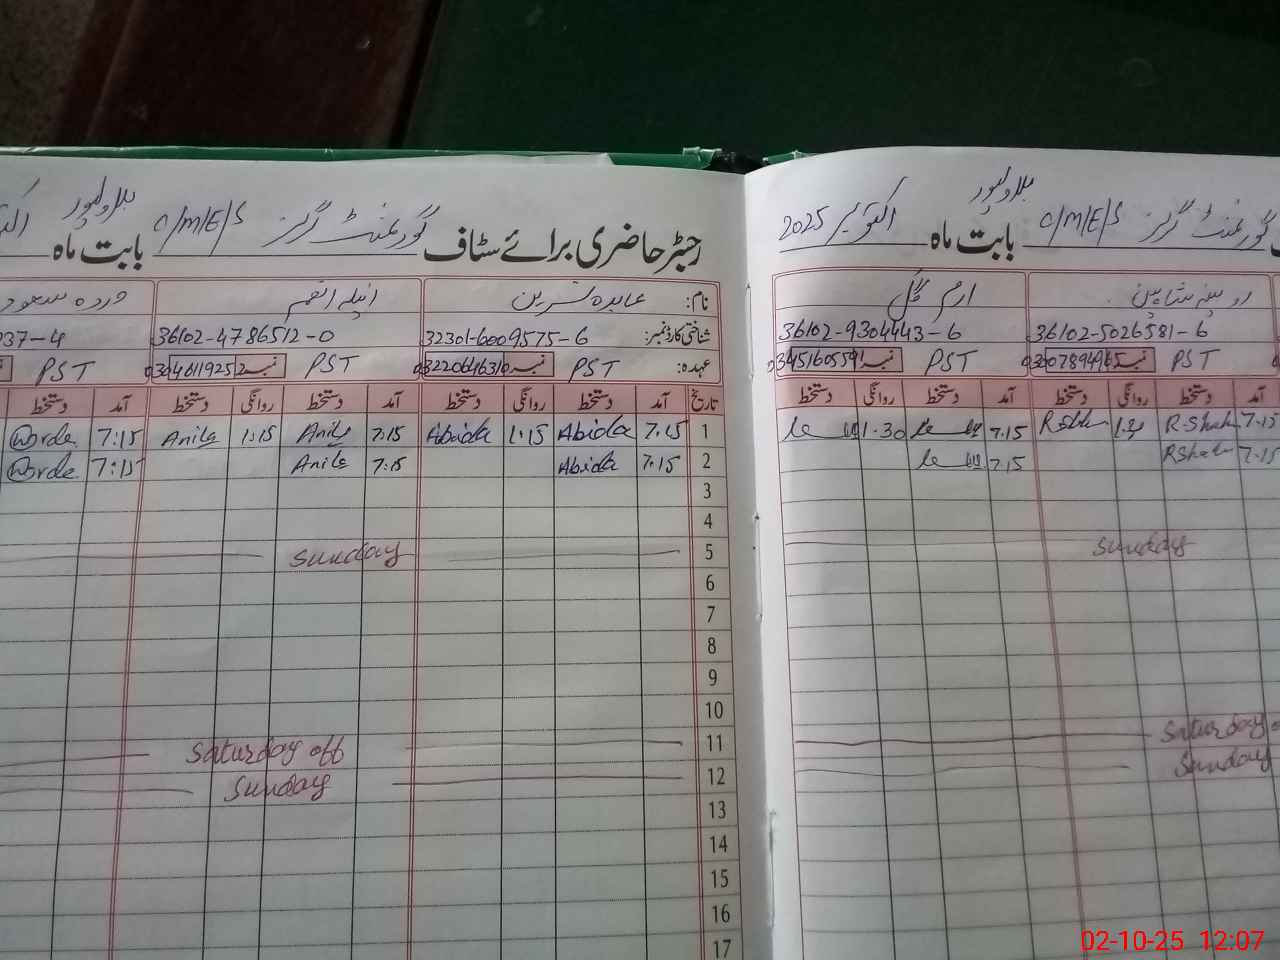 رجسٹر حاضری برائے سٹاف گورنمنٹ گرلز C/M/E/S بہاولپور بابت ماہ
نام: عابدہ نسرین انیلہ انعم وردہ سعود
شناختی کارڈ نمبر: 32301-6009575-6 36102-4786512-0 237-4
عہدہ: PST نمبر 03220646310 PST نمبر 03046119252 PST
تاریخ آمد دستخط روانگی دستخط آمد دستخط روانگی دستخط آمد دستخط
1 7:15 Abida 1:15 Abida 7:15 Anila 1:15 Anila 7:15 Warda
2 7:15 Abida 7:15 Anila 7:15 Warda
3
4
5 Sunday
6
7
8
9
10
11 Saturday off
12 Sunday
13
14
15
16
17
گورنمنٹ گرلز C/M/E/S بہاولپور بابت ماہ اکتوبر 2025
روبینہ شاہین ارم گل
36102-5026581-6 36102-9304443-6
PST نمبر 03007894965 PST نمبر 03451605591
آمد دستخط روانگی دستخط آمد دستخط روانگی دستخط
7:15 R-Shah 1:30 7:15 1:30
7:15 RShah 7:15
Sunday
Saturday
Sunday
02-10-25 12:07